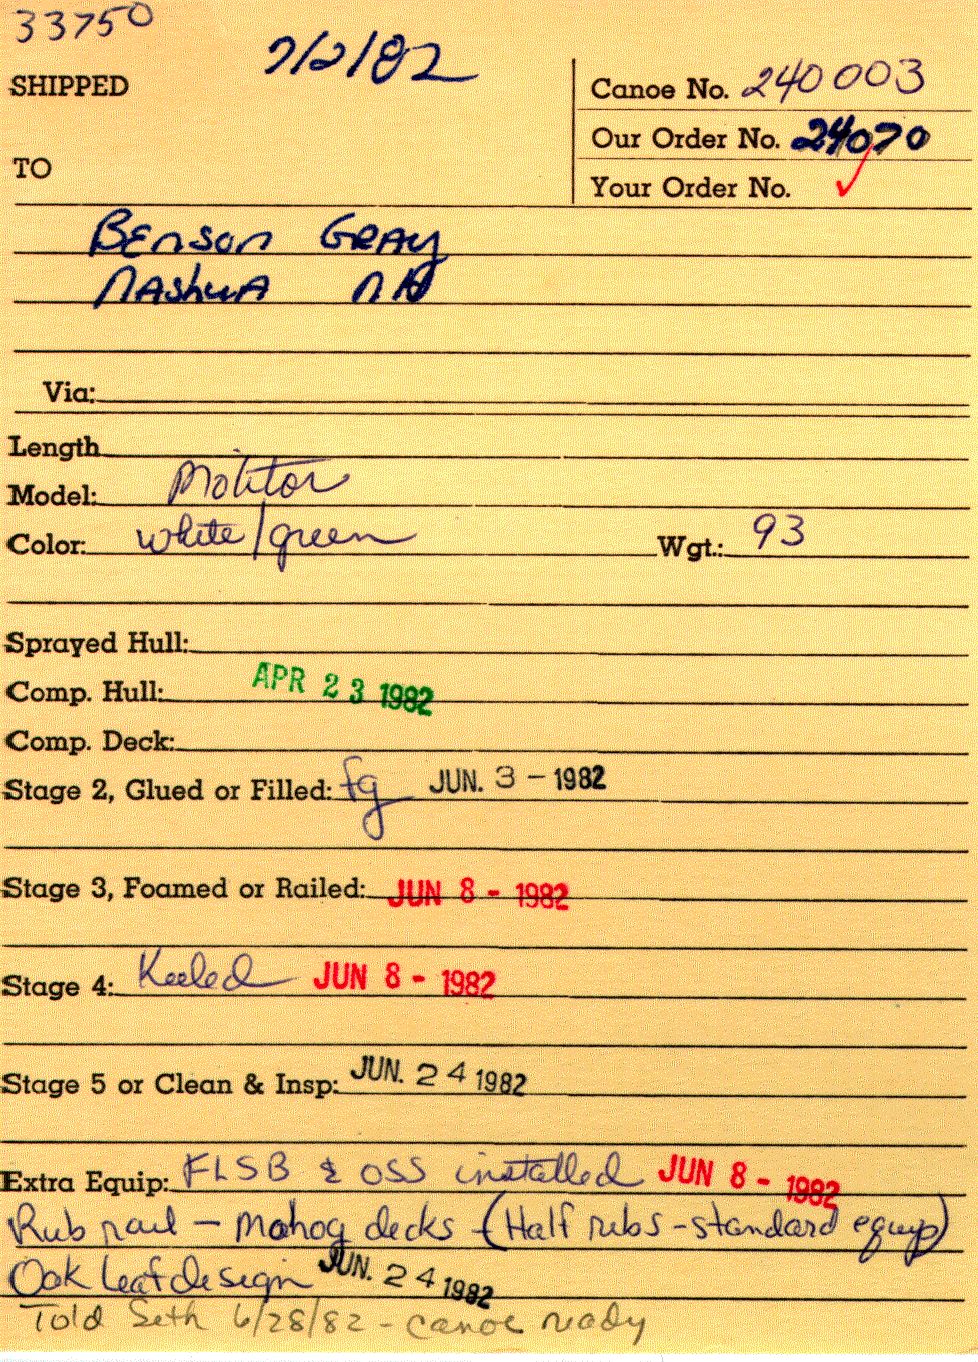 33750
SHIPPED 7/2/82
Canoe No. 240003
Our Order No. 24070
TO
Your Order No. ✓
BEnson GRAy
NAshuA NH
Via:
Length
Model: Molitor
Color: white/green Wgt.: 93
Sprayed Hull:
Comp. Hull: APR 23 1982
Comp. Deck:
Stage 2, Glued or Filled: fg JUN. 3 - 1982
Stage 3, Foamed or Railed: JUN 8 - 1982
Stage 4: Keeled JUN 8 - 1982
Stage 5 or Clean & Insp: JUN. 24 1982
Extra Equip: FLSB & OSS installed JUN 8 - 1982
Rub rail - Mahog decks - (Half ribs - standard equip)
Oak leaf design JUN. 24 1982
Told Seth 6/28/82 - canoe ready